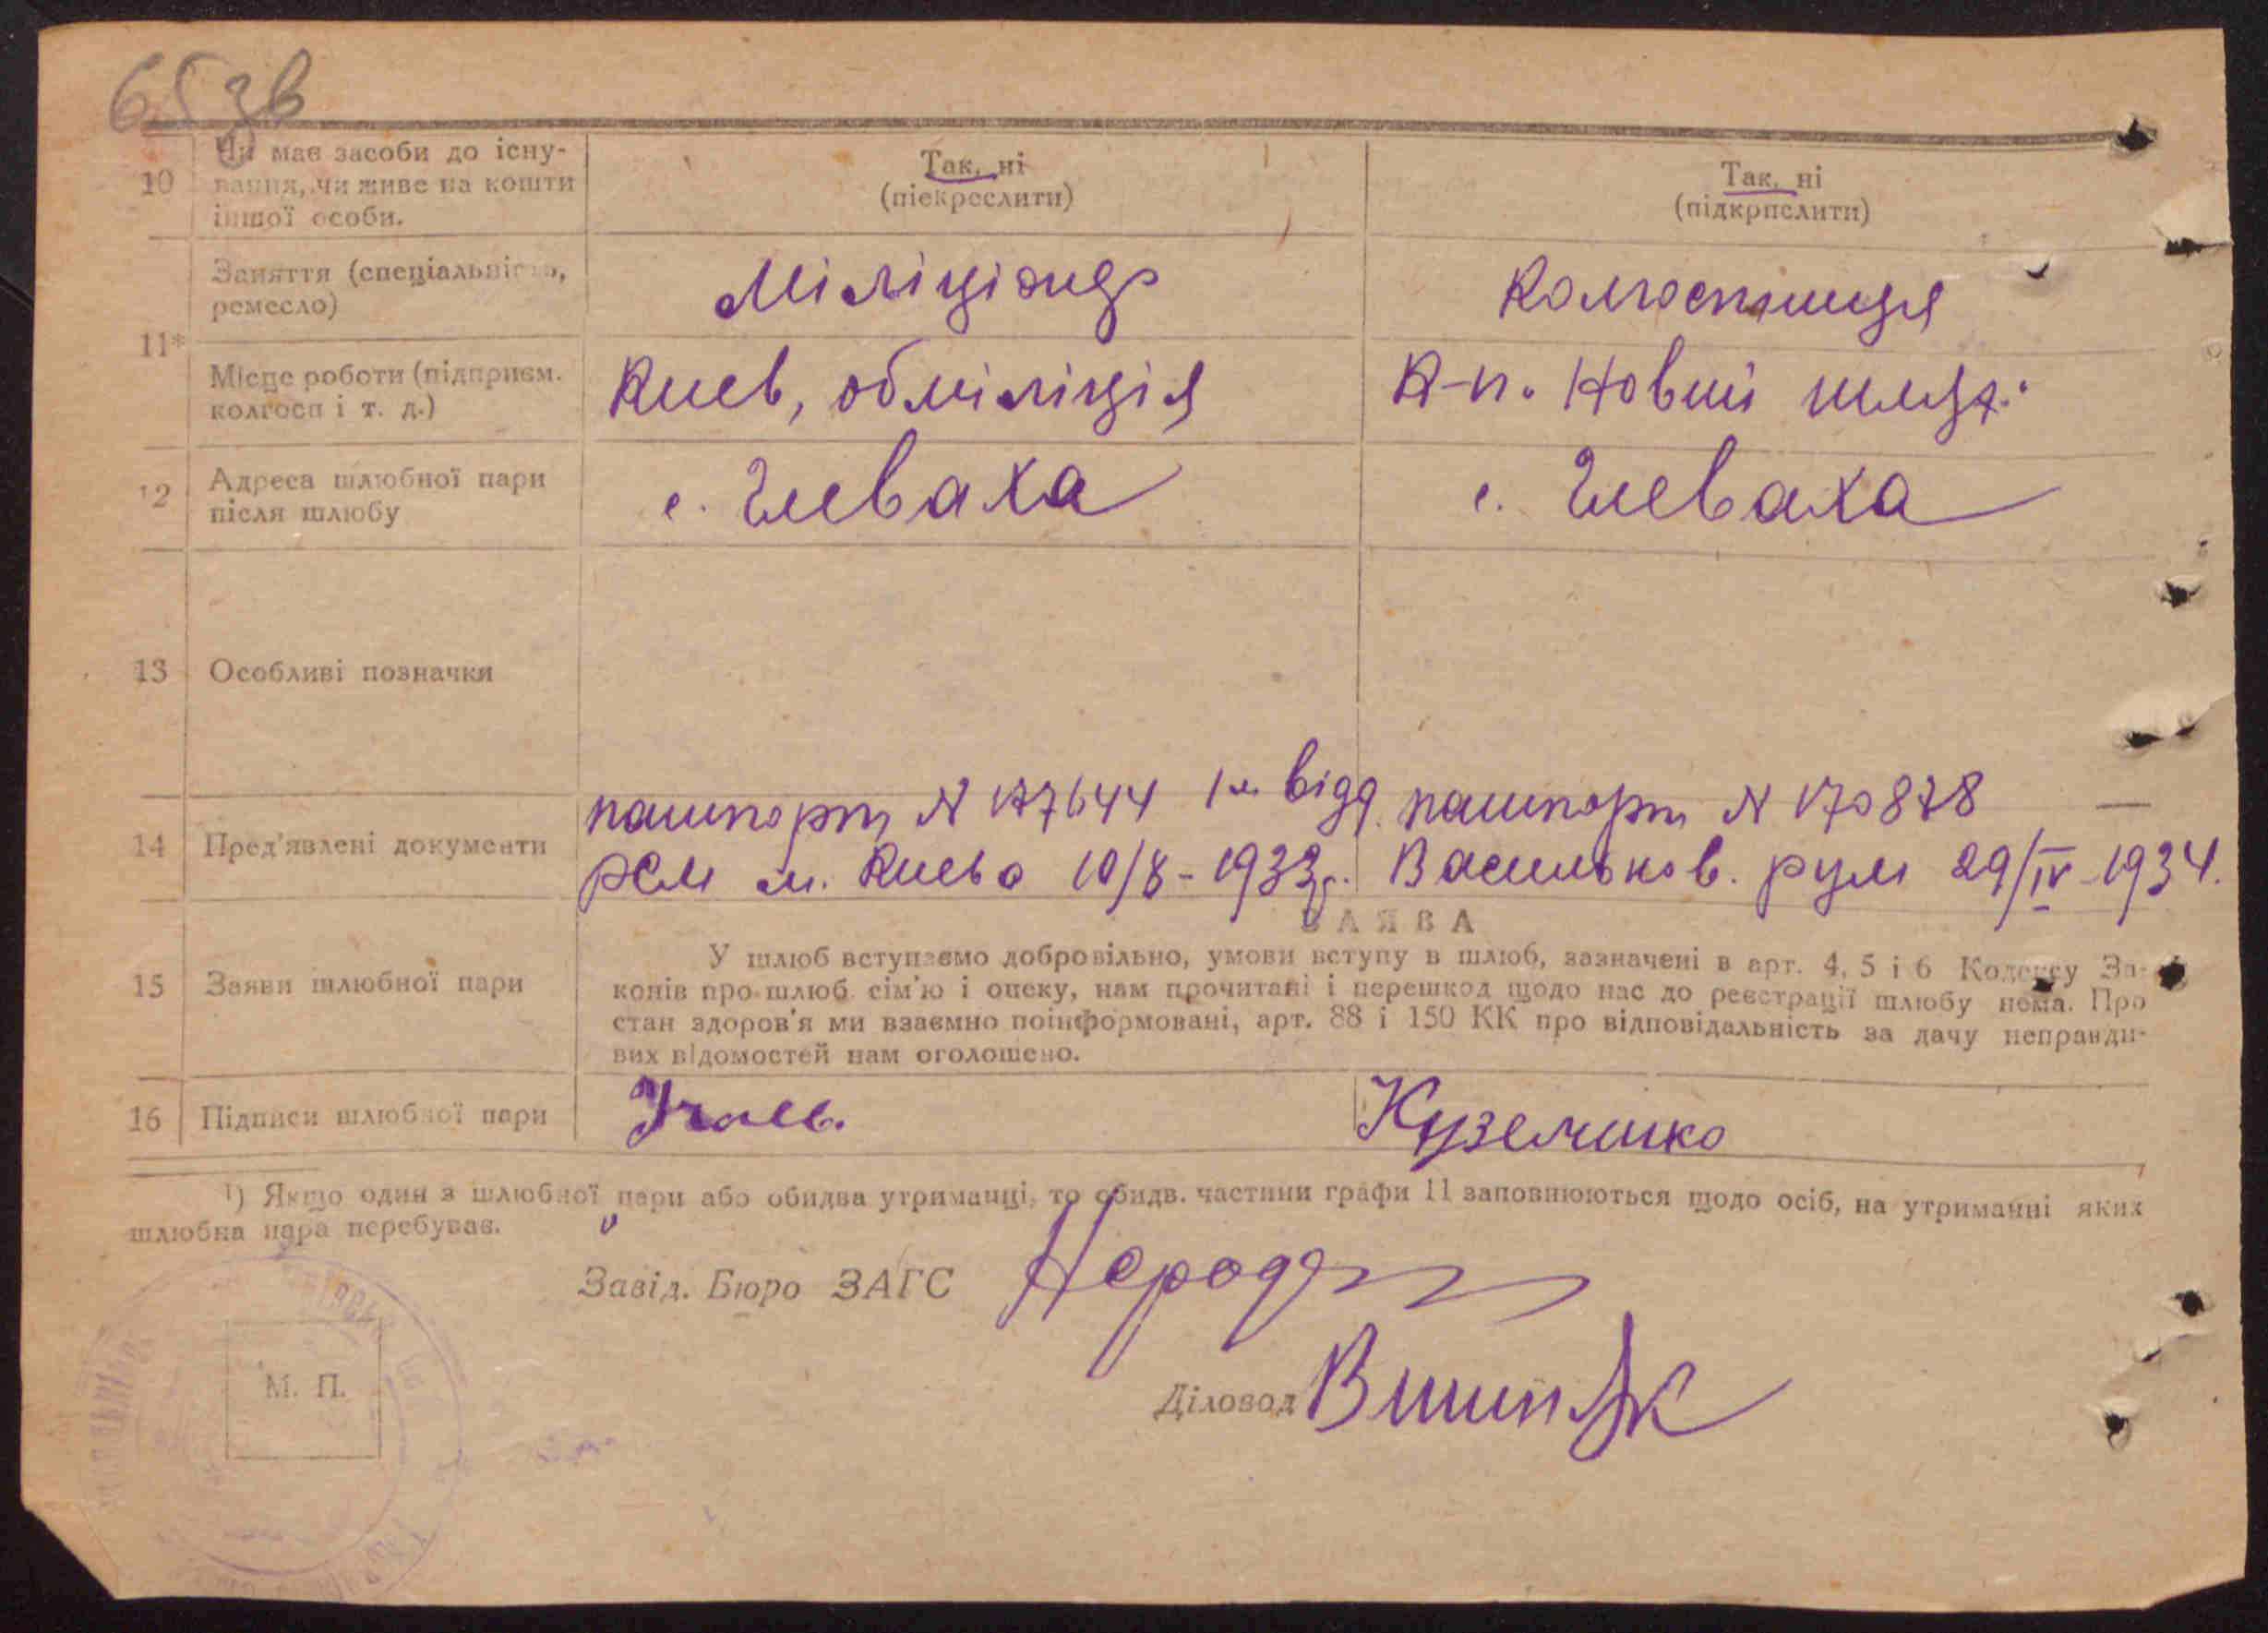 65 зв
10 Чи має засоби до існу-
вання, чи живе на кошти
іншої особи.
Так, ні
(піекреслити)
Так, ні
(підкрпслити)
Заняття (спеціальність,
ремесло)
Міліціонер
Колгоспниця
11*
Місце роботи (підприєм.
колгосп і т. д.)
Киев, облміліція
К-п. Новий шлях.
12 Адреса шлюбної пари
після шлюбу
с. Глеваха
с. Глеваха
13 Особливі позначки
14 Пред'явлені документи
пашпорт N 177644 1м відд.
РСМ м. Києва 10/8-1933р.
пашпорт N 170878 —
Васильков. рум 29/IV-1934.
ЗАЯВА
15 Заяви шлюбної пари
У шлюб вступаємо добровільно, умови вступу в шлюб, зазначені в арт. 4, 5 і 6 Кодексу За-
конів про шлюб сім'ю і опеку, нам прочитані і перешкод щодо нас до реєстрації шлюбу нема. Про
стан здоров'я ми взаємно поінформовані, арт. 88 і 150 КК про відповідальність за дачу неправди-
вих відомостей нам оголошено.
16 Підписи шлюбної пари
Куземенко
¹) Якщо один з шлюбної пари або обидва утриманці, то обидв. частини графи 11 заповнюються щодо осіб, на утриманні яких
шлюбна пара перебуває.
Завід. Бюро ЗАГС
Діловод
М. П.